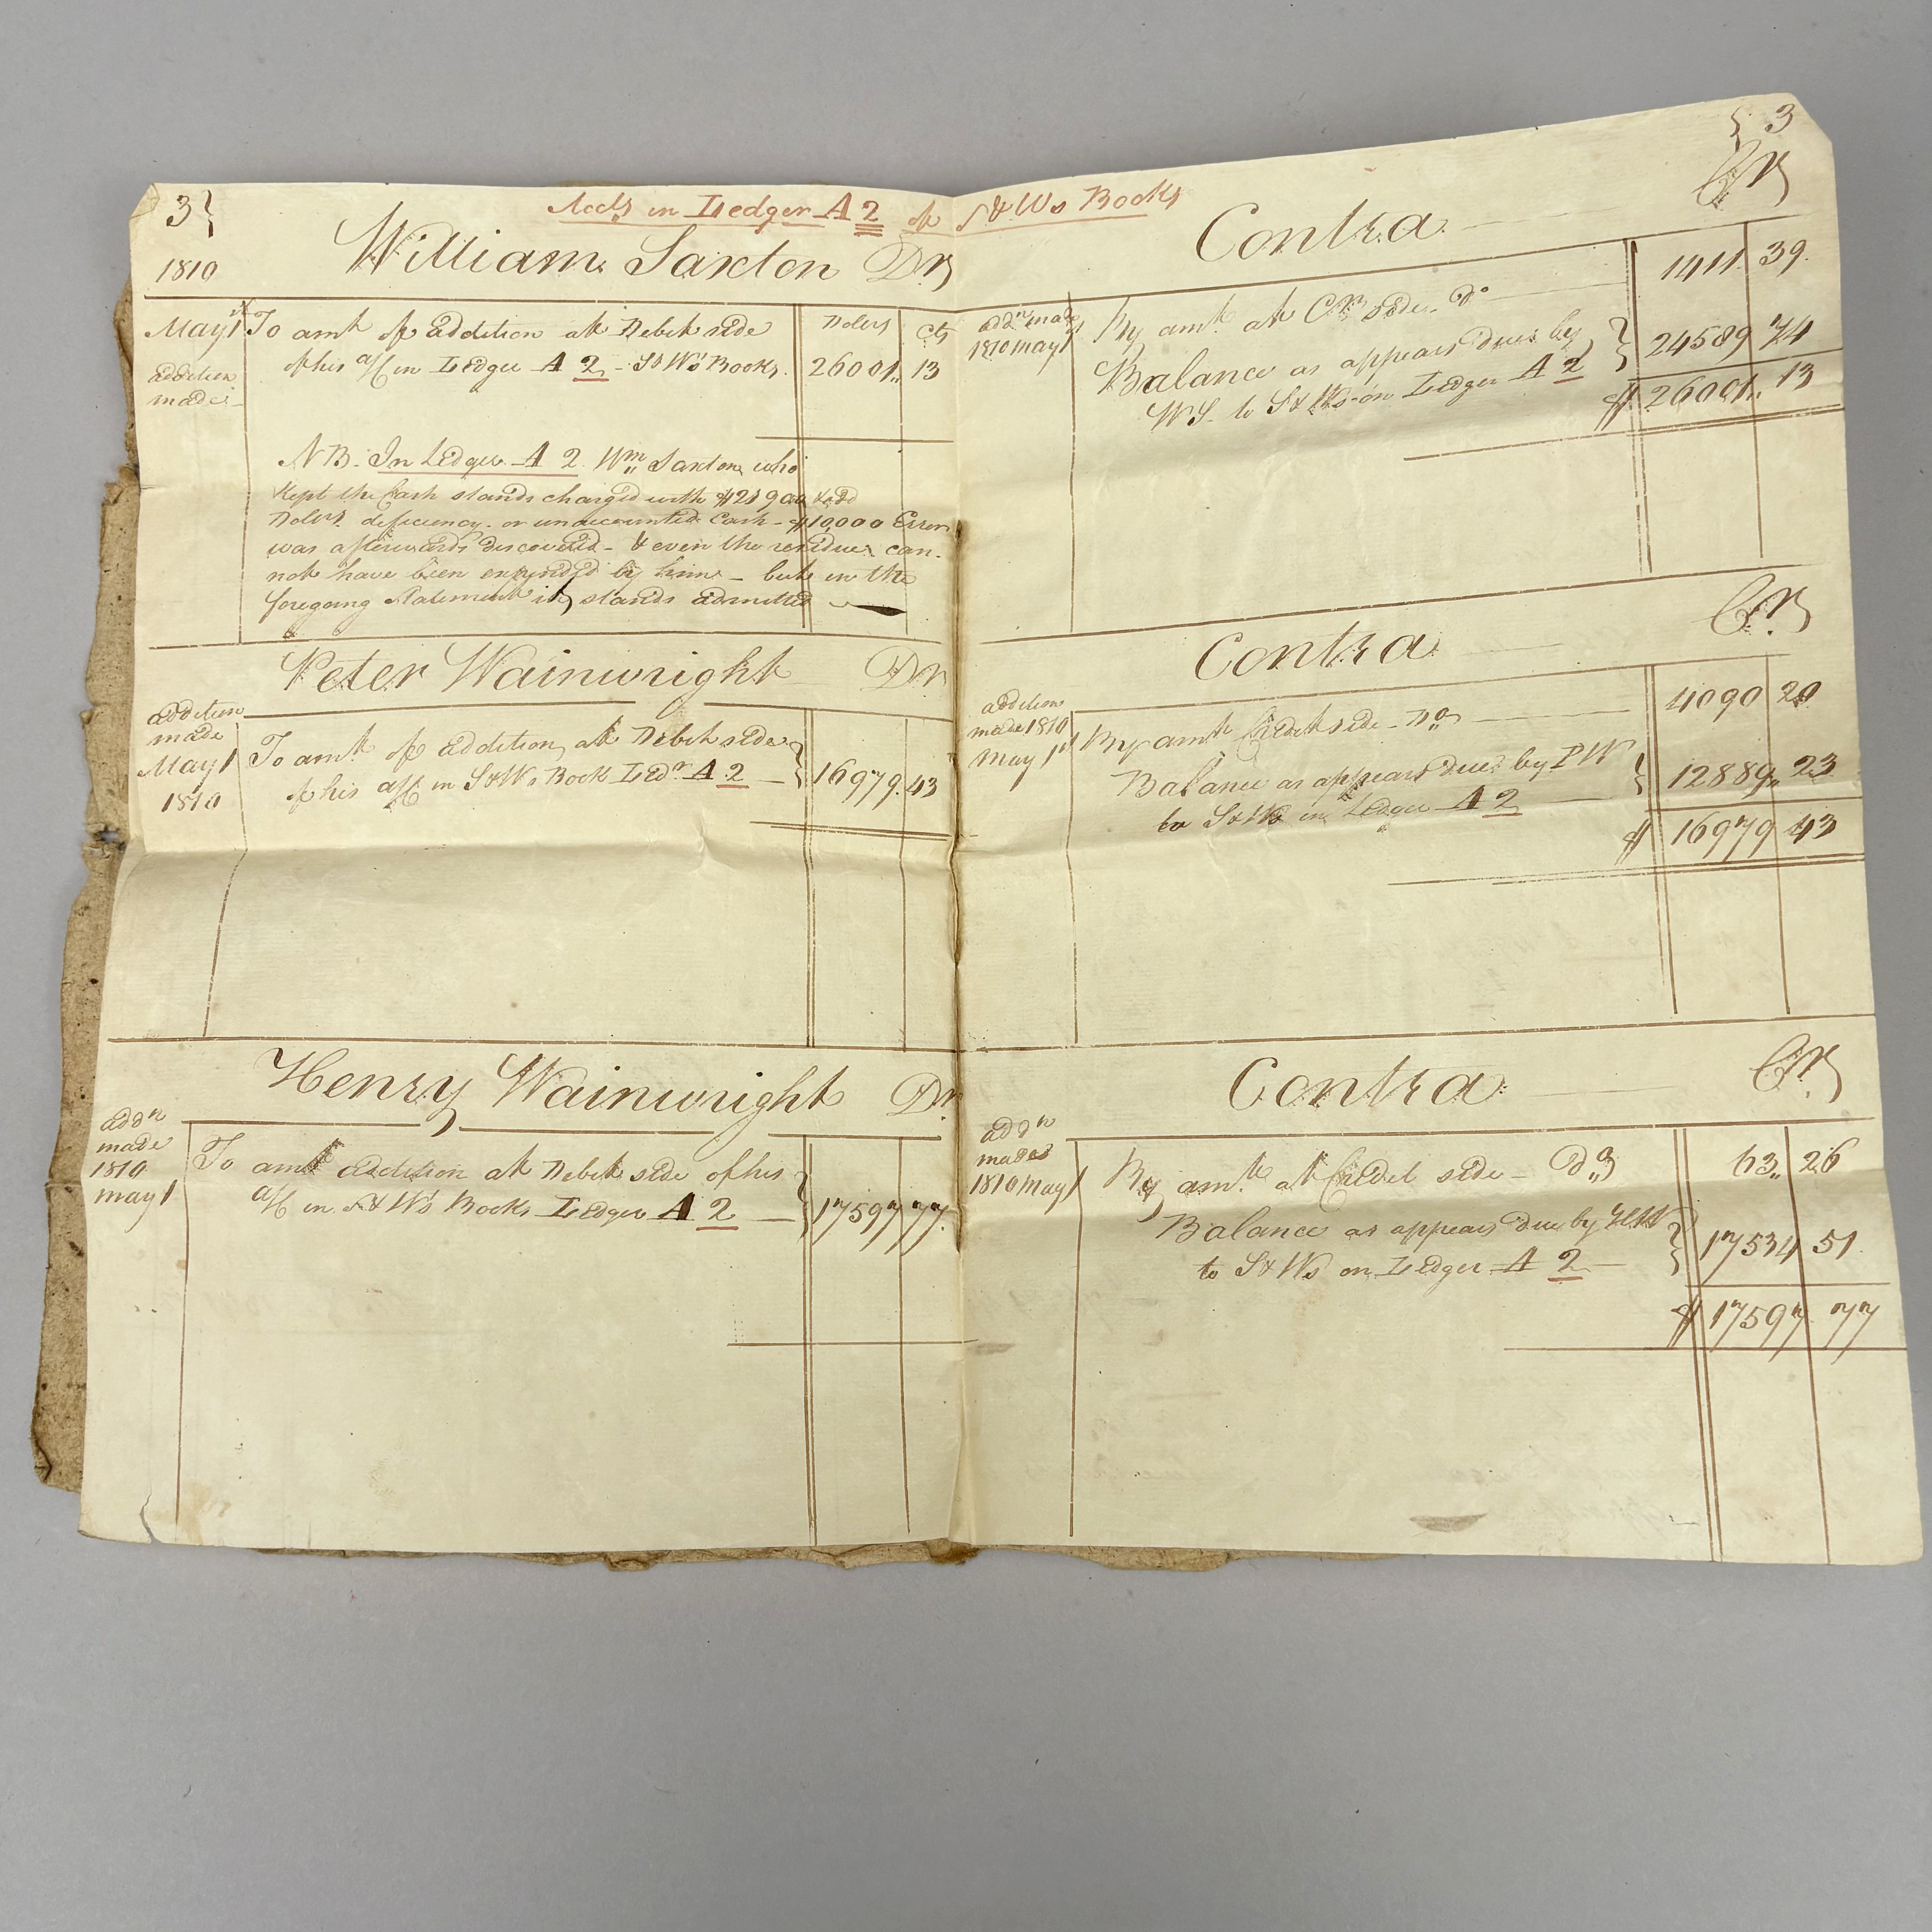 3}
Accts in Ledger A 2 of S & Ws Books
William Saxton Dr
1810
May 1st To amt of addition at Debit side
Dolers cts
addition made of his a/c in Ledger A 2 - S & Ws Books. 26001,, 13
NB. In Ledger A 2 Wm Saxton who
Kept the Cash stands charged with
Dolers deficiency or unaccounted Cash - $10,000 Error
was afterwards discovered - & even the residue can-
not have been expended by him - but in the
foregoing Statement it stands admitted
Peter Wainwright Dr
addition
made
May 1 To amt of addition at Debit side
1810 of his a/c in S & Ws Book Ledr A 2 } 16979. 43
Henry Wainwright Dr
addn
made
1810 To amt addition at Debit side of his
May 1 a/c in S & Ws Books Ledger A 2 } 17597 77
{ 3
Contra Cr
addn made
1810 May 1 By amt at Cr side do 1411. 39.
Balance as appears due by
W S. to S & Ws on Ledger A 2 } 24589 74
$ 26001,, 13
Contra Cr
addition
made 1810
May 1st By amt Credit side - Do 4090 20
Balance as appears due by P W
to S & Ws in Ledger A 2 } 12889,, 23
$ 16979 43
Contra Cr
addn
made
1810 May 1 By amt at Credit side - do 63,, 26
Balance as appears due by HW
to S & Ws on Ledger A 2 } 17534 51
$ 17597 77